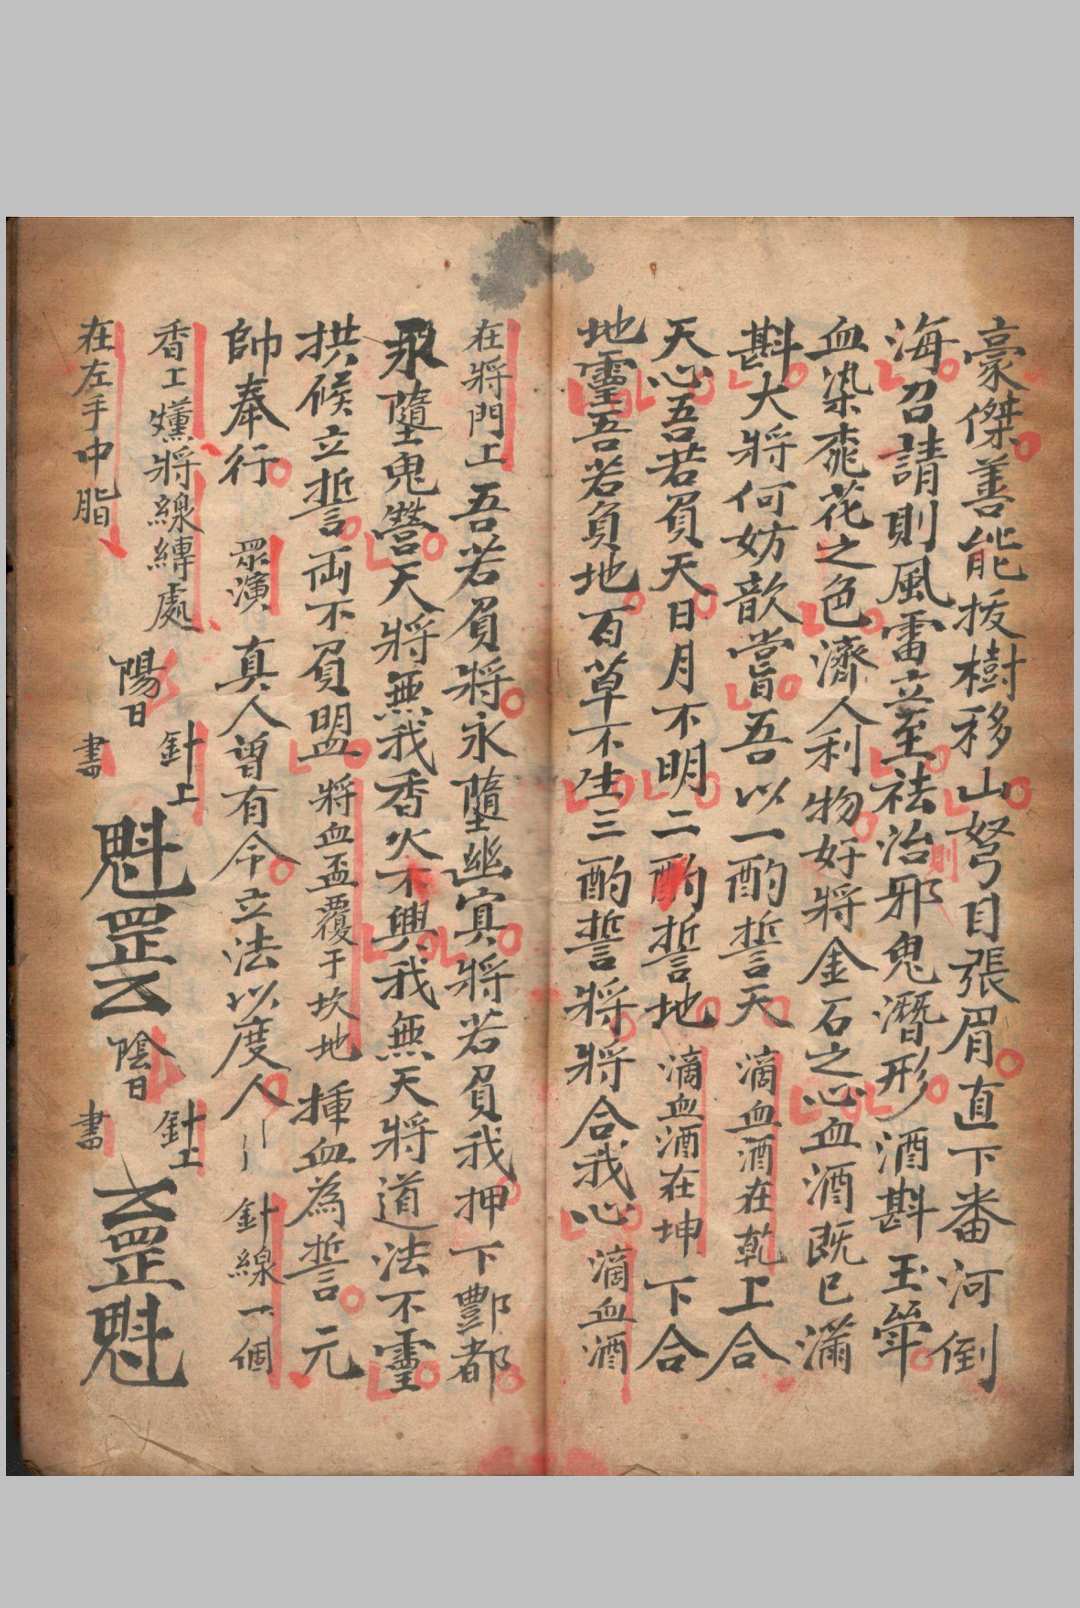 豪傑善能拔樹移山努目張眉直下番河倒
海召請則風雷立至祛治邪鬼潛形酒斟玉斝
則
血染桃花之色濟人利物好將金石之心血酒既已滿
斟大將何妨歆嘗吾以一酌誓天滴血酒在乾上合
天心吾若負天日月不明二酌誓地滴血酒在坤下合
地靈吾若負地百草不生三酌誓將將合我心滴血酒
在將門上吾若負將永墮幽冥將若負我押下酆都
永墮鬼營天將無我香火不興我無天將道法不靈
拱候立誓両不負盟將血盃覆于坎地揷血為誓元
帥奉行眾演真人曾有令立法以度人針線一個
香上燻將線縛處陽日針上書魁罡
陰日針上書罡魁
在左手中脂